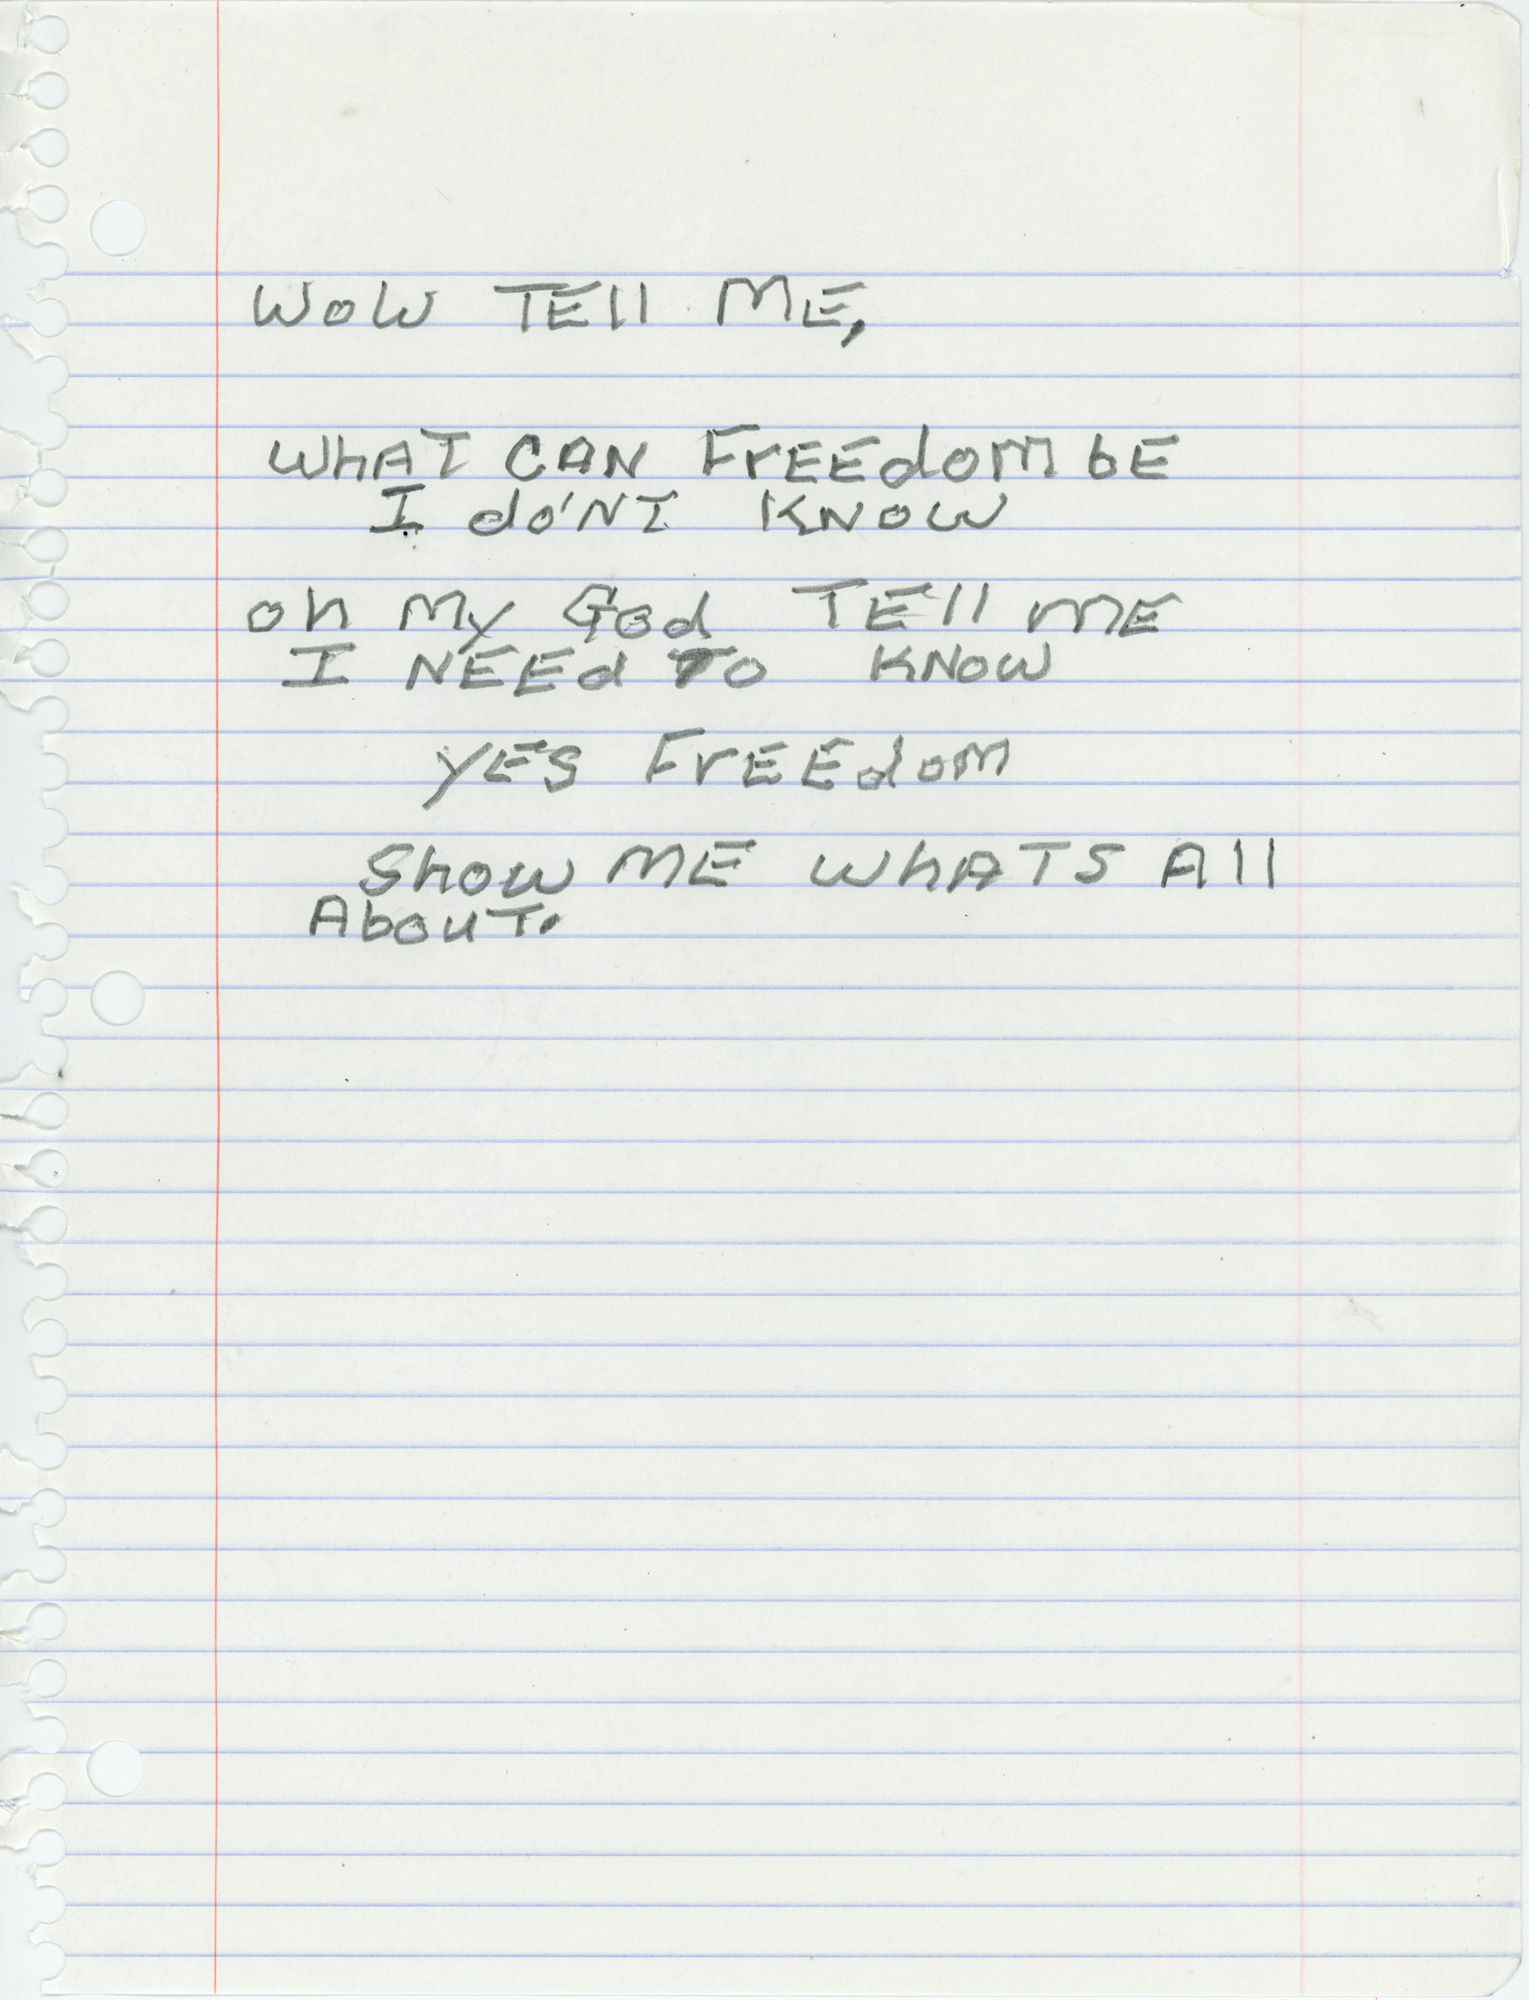 WOW TEll ME,
WhAT CAN FrEEdom bE
I do'NT KNOW
oh my God TEll mE
I NEEd TO KNOW
yES FrEEdom
Show ME WhATS All
AbouT.